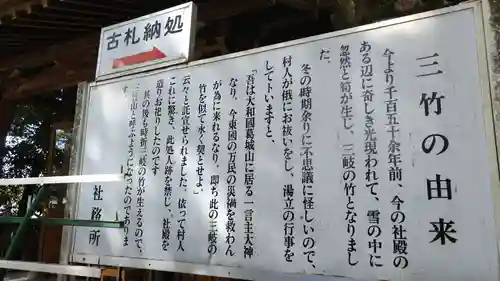 古札納処
三竹の由来
今より千百五十余年前、今の社殿の
ある辺に奇しき光現われて、雪の中に
忽然と筍が生じ、三岐の竹となりまし
た。
冬の時期余りに不思議に怪しいので、
村人が俄にお祓いをし、湯立の行事を
してトいますと、
「吾は大和國葛城山に居る一言主大神
なり、今東國の万民の災禍を救わん
が為に来れるなり、即ち此の三岐の
竹を似て永く契とせよ。」
云々と託宣せられました。依って村人
これに驚き、此處人跡を禁じ、社殿を
造りお祀りしたのです。
其の後も時折三岐の竹が生えるので、
と呼ぶようになったのであります
社務所